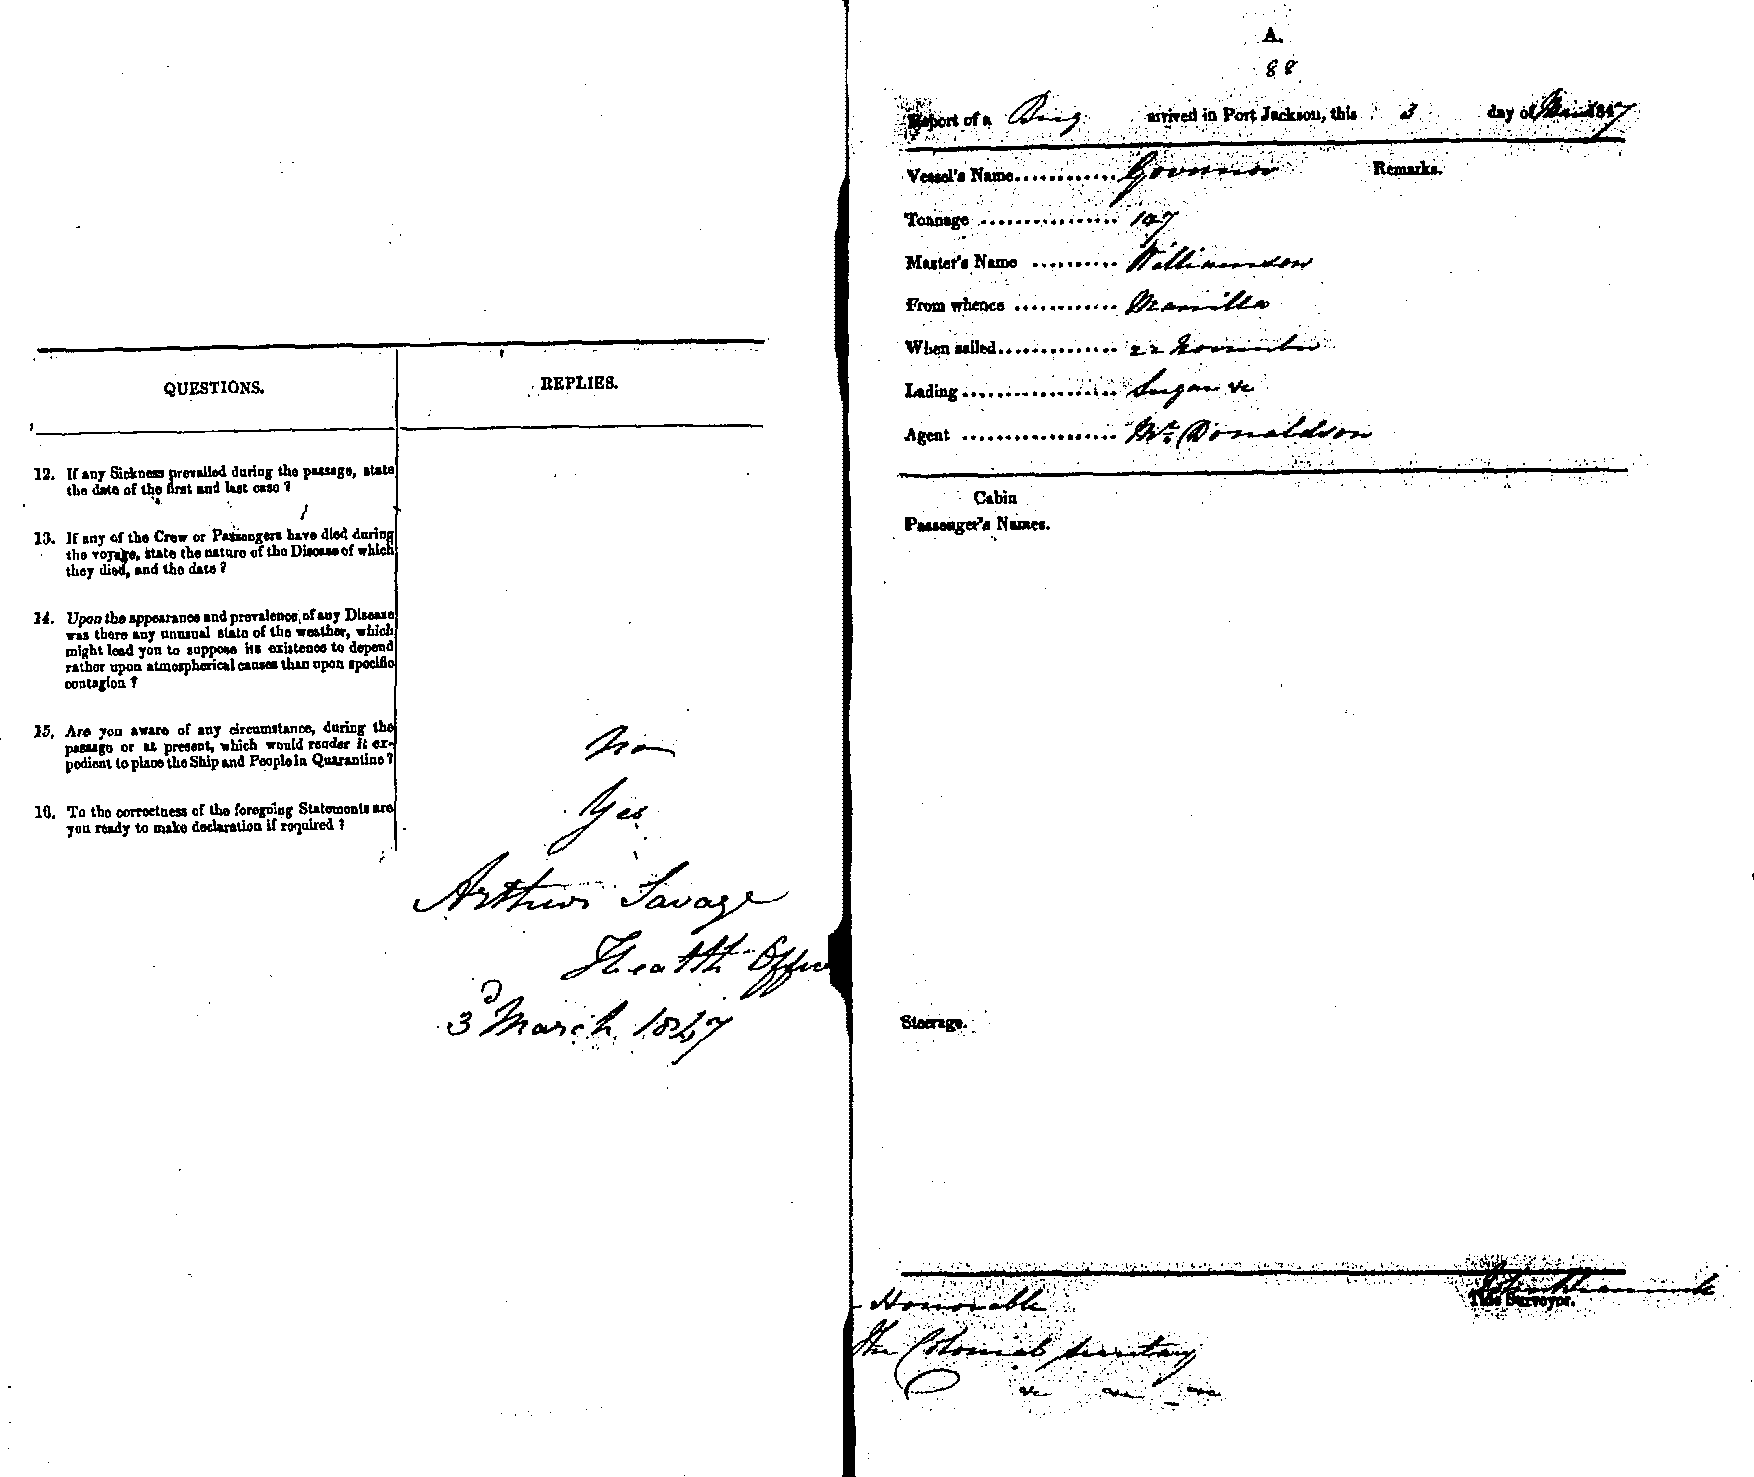 QUESTIONS.
REPLIES.
12. If any Sickness prevailed during the passage, state
the date of the first and last case ?
13. If any of the Crew or Passengers have died during
the voyage, state the nature of the Disease of which
they died, and the date ?
14. Upon the appearance and prevalence of any Disease
was there any unusual state of the weather, which
might lead you to suppose its existence to depend
rather upon atmospherical causes than upon specific
contagion ?
15. Are you aware of any circumstance, during the
passage or at present, which would render it ex-
pedient to place the Ship and People in Quarantine ?
No
16. To the correctness of the foregoing Statements are
you ready to make declaration if required ?
Yes
Arthur Savage
Health Officer
3d March 1847
A.
88
Report of a Brig arrived in Port Jackson, this 3 day of March 1847
Vessel's Name............ Governor
Remarks.
Tonnage ................ 107
Master's Name .......... Williamson
From whence ............ Manilla
When sailed.............. 22 November
Lading ................... Sugar &c
Agent ................... Mr. Donaldson
Cabin
Passenger's Names.
Steerage.
Honorable
The Colonial Secretary
&c &c &c
Tide Surveyor.